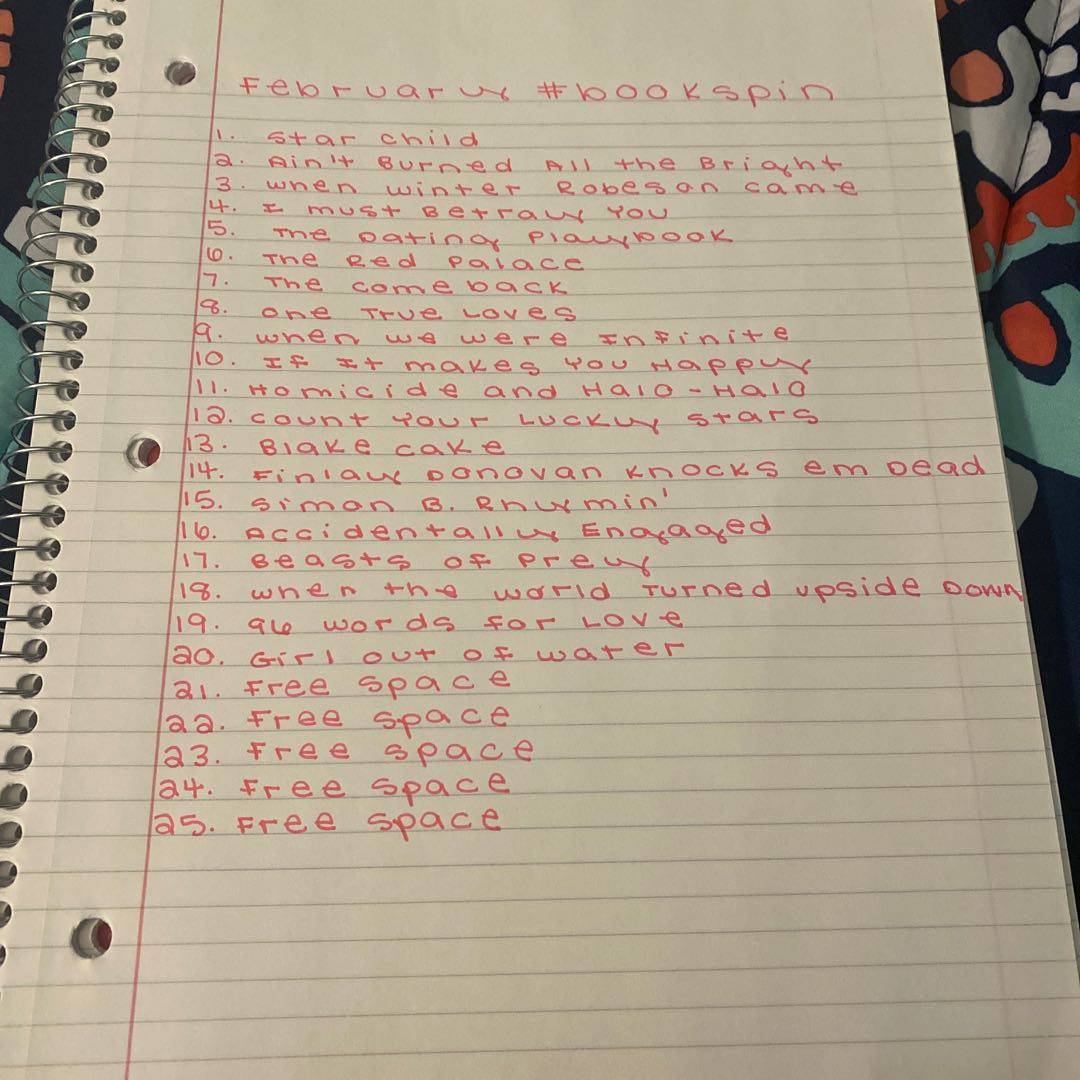 February #bookspin
1. Star Child
2. Ain't Burned All the Bright
3. When Winter Robeson Came
4. I Must Betray You
5. The Dating Playbook
6. The Red Palace
7. The Comeback
8. One True Loves
9. When We Were Infinite
10. If It Makes You Happy
11. Homicide and Halo-Halo
12. Count Your Lucky Stars
13. Blake Cake
14. Finlay Donovan Knocks em Dead
15. Simon B. Rhymin'
16. Accidentally Engaged
17. Beasts of Prey
18. When the World Turned Upside Down
19. 96 Words for Love
20. Girl Out of Water
21. Free Space
22. Free Space
23. Free Space
24. Free Space
25. Free Space